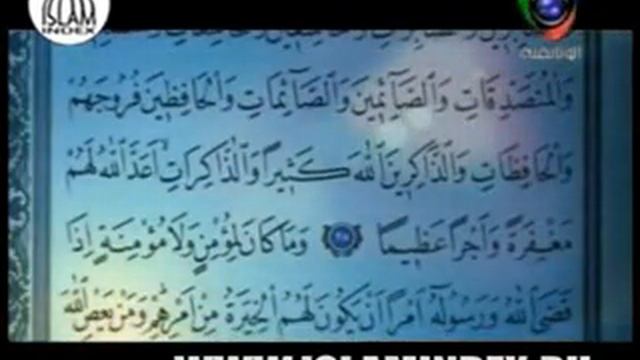 ISLAM
INDEX
الوثائقية
وَالْمُتَصَدِّقَاتِ وَالصَّآئِمِينَ وَالصَّآئِمَاتِ وَالْحَافِظِينَ فُرُوجَهُمْ
وَالْحَافِظَاتِ وَالذَّاكِرِينَ اللّٰهَ كَثِيرًا وَالذَّاكِرَاتِ اَعَدَّ اللّٰهُ لَهُمْ
مَغْفِرَةً وَاَجْرًا عَظِيمًا ﴿٣٥﴾ وَمَا كَانَ لِمُؤْمِنٍ وَلَا مُؤْمِنَةٍ اِذَا
قَضَى اللّٰهُ وَرَسُولُهُ اَمْرًا اَنْ يَكُونَ لَهُمُ الْخِيَرَةُ مِنْ اَمْرِهِمْ وَمَنْ يَعْصِ اللّٰهَ